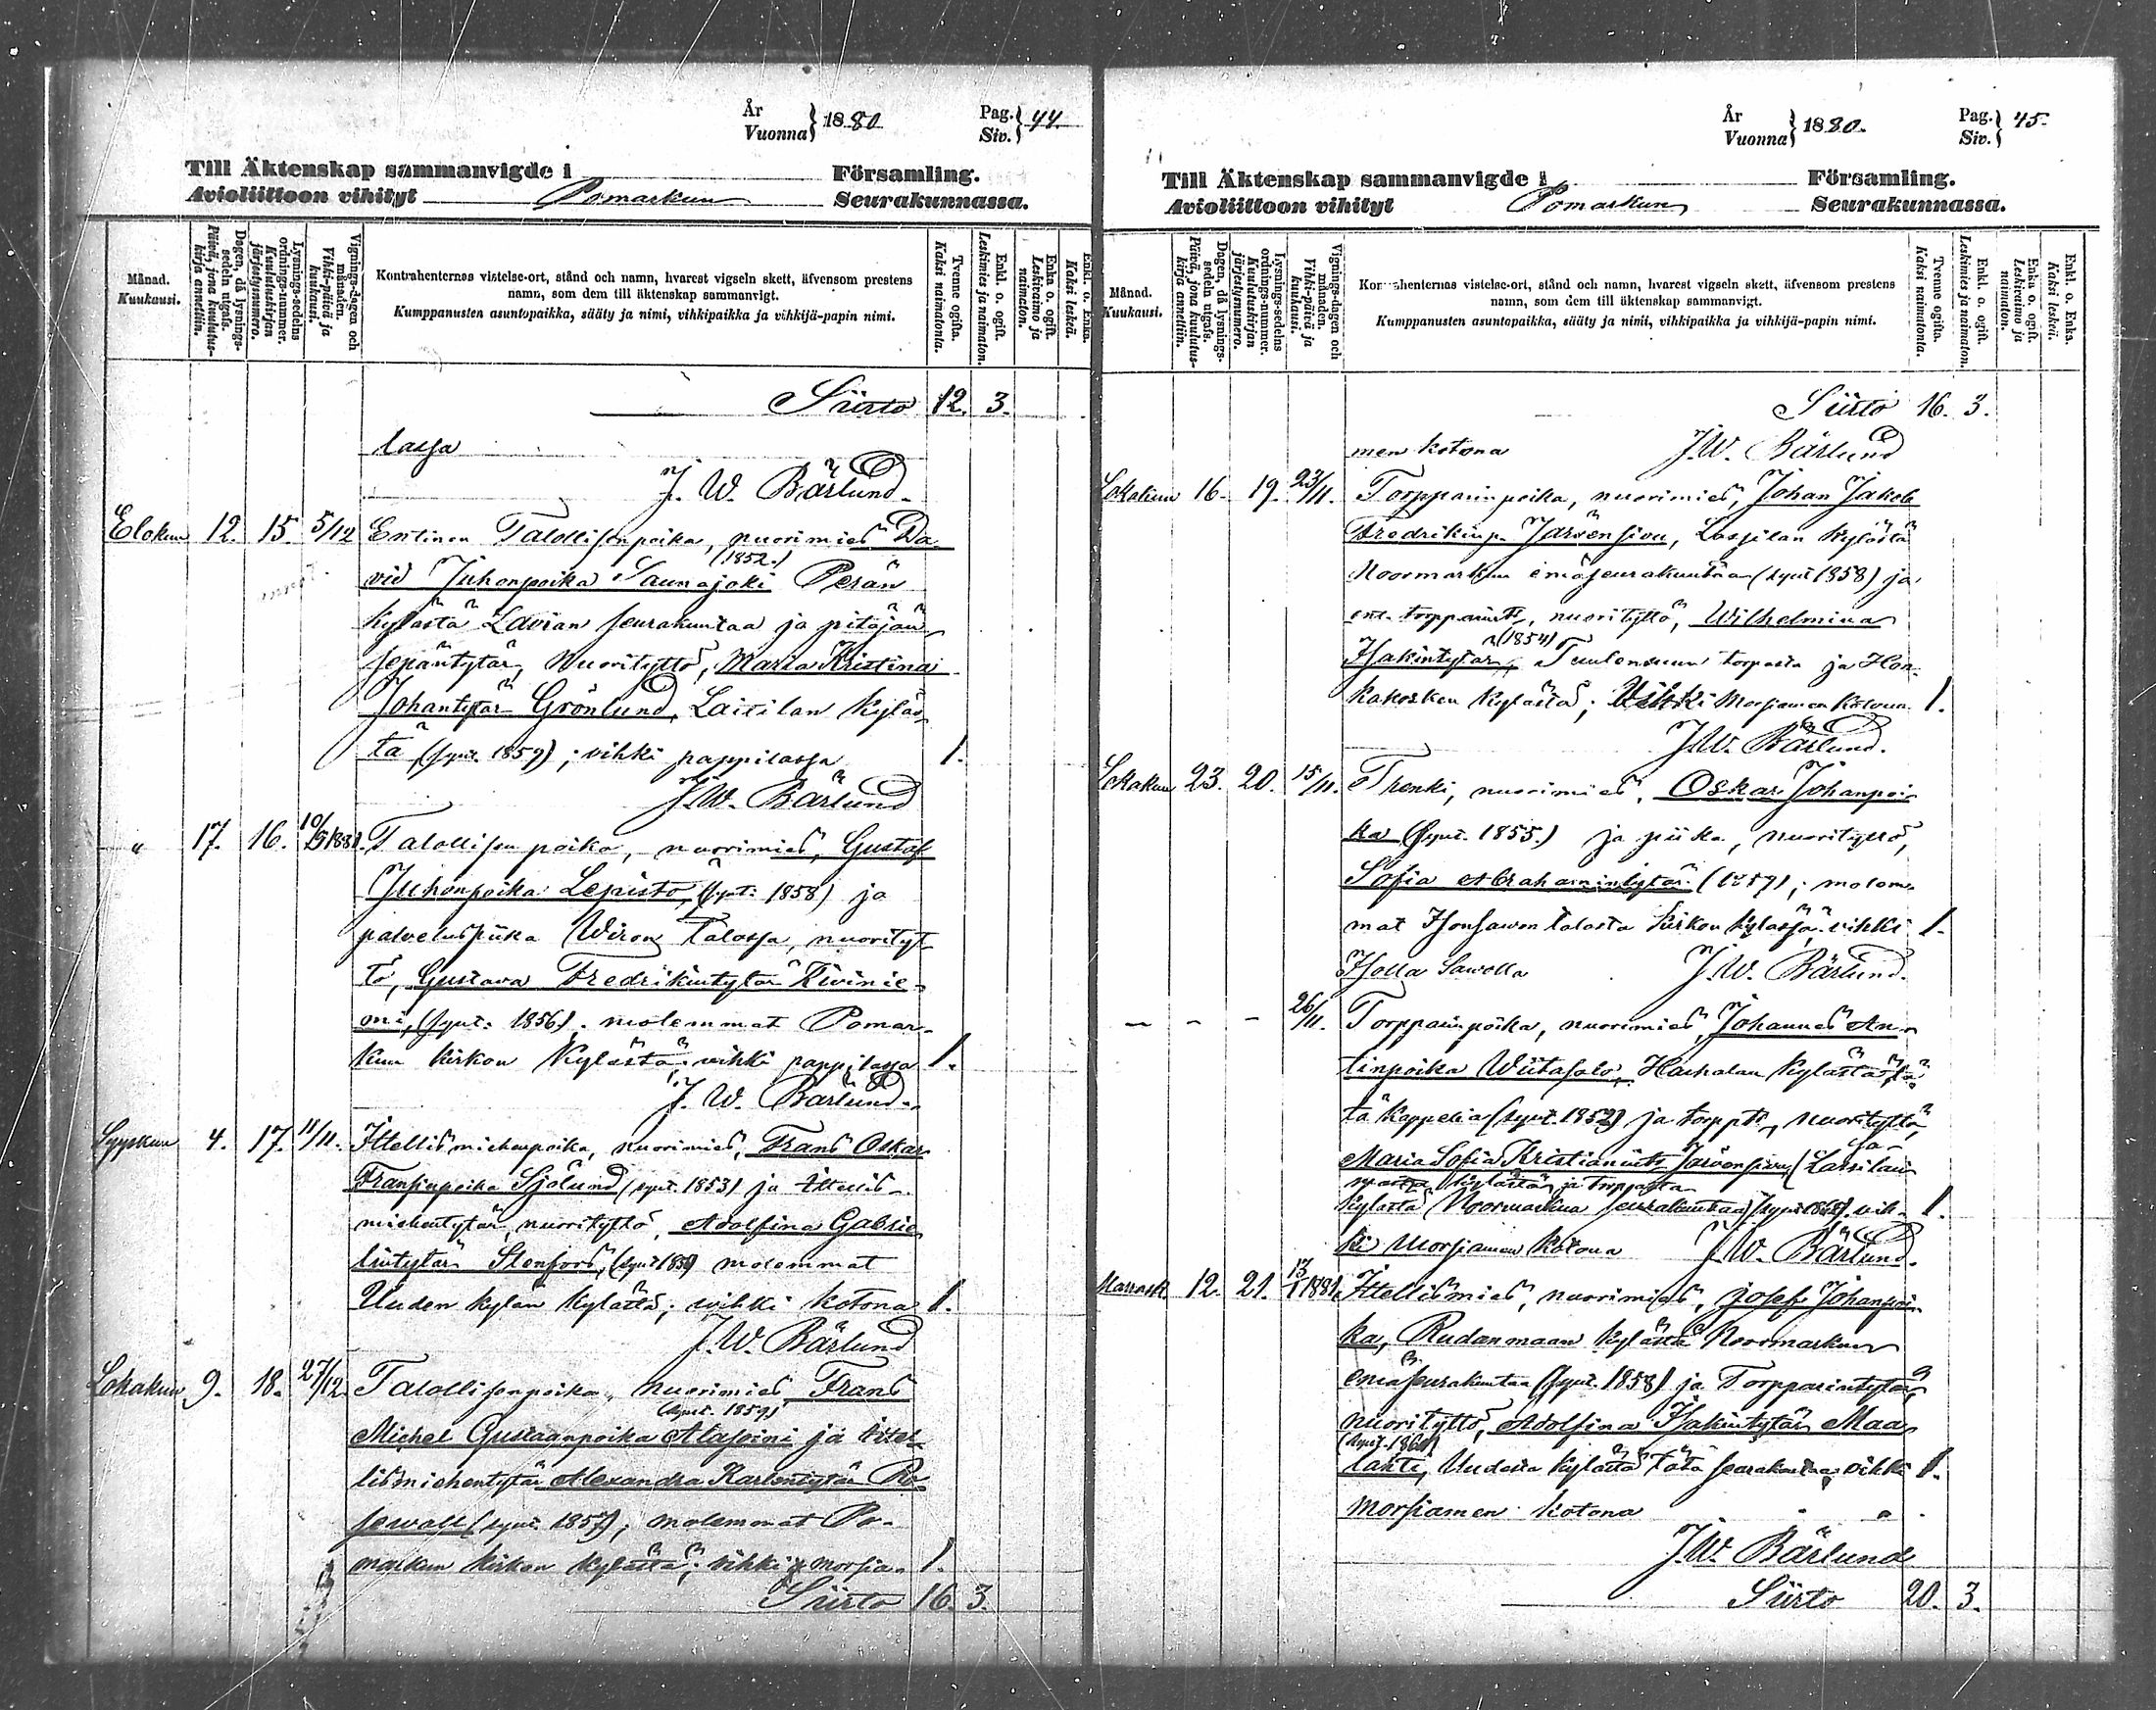 År
Vuonna } 1880
Pag.
Siv. } 44.
Till Äktenskap sammanvigde i Församling.
Avioliittoon vihityt Pomarkun Seurakunnassa.
Månad.
Kuukausi.
Dagen, då lysnings-
sedeln utgafs.
Päivä, jona kuulutus-
kirja annettiin.
Lysnings-sedelns
ordnings-nummer.
Kuulutuskirjan
järjestysnumero.
Vignings-dagen och
månaden.
Vihki-päivä ja
kuukausi.
Kontrahenternas vistelse-ort, stånd och namn, hvarest vigseln skett, äfvensom prestens
namn, som dem till äktenskap sammanvigt.
Kumppanusten asuntopaikka, sääty ja nimi, vihkipaikka ja vihkijä-papin nimi.
Tvenne ogifta.
Kaksi naimatonta.
Enkl. o. ogift.
Leskimies ja naimaton.
Enka o. ogift.
Leskivaimo ja
naimaton.
Enkl. o. Enka.
Kaksi leskeä.
Siirto 12. 3.
lassa
J. W. Bärlund.
Elokun 12. 15. 5/12 Entinen Talollisenpoika, nuorimies Da-
(1852.)
vid Juhonpoika Saunajoki Perän
kylästä Lavian seurakuntaa ja pitäjän
sepäntytär, Nuorityttö, Maria Kristina
Johantytär Grönlund, Laisilan kyläs-
tä, (synt. 1859); vihki pappilassa 1.
J. W. Bärlund
" 17. 16. 10/5 1881. Talollisen poika, nuorimies, Gustaf
Juhonpoika Lepistö, (synt: 1858) ja
palveluspiika Wiron Talossa, nuorityt-
tö, Gustava Fredrikintytär Kivinie-
mi, (synt: 1856), molemmat Pomar-
kun kirkon kylästä; vihki pappilassa 1.
J. W. Bärlund.
Syyskun 4. 17. 11/11. Ittellismiehenpoika, nuorimies, Frans Oskar
Fransinpoika Sjölund (synt. 1853) ja ittellis-
miehentytär, nuorityttö, Adolfina Gabrie-
lintytär Stenfors, (synt molemmat
Uuden kylän kylästä; vihki kotona 1.
J. W. Bärlund
Lokakun 9. 18. 27/12. Talollisenpoika, nuorimies Frans
(synt. 1859)
Michel Gustaanpoika Alasoini ja ittel-
lismiehentytär Alexandra Karlentytär Ro-
sewall (synt. 1857); molemmat Po-
markun kirkon kylästä; vihki morsia- 1.
Siirto 16. 3.
År
Vuonna } 1880.
Pag.
Siv. } 45.
Till Äktenskap sammanvigde i Församling.
Avioliittoon vihityt Pomarkun Seurakunnassa.
Månad.
Kuukausi.
Dagen, då lysnings-
sedeln utgafs.
Päivä, jona kuulutus-
kirja annettiin.
Lysnings-sedelns
ordnings-nummer.
Kuulutuskirjan
järjestysnumero.
Vignings-dagen och
månaden.
Vihki-päivä ja
kuukausi.
Kontrahenternas vistelse-ort, stånd och namn, hvarest vigseln skett, äfvensom prestens
namn, som dem till äktenskap sammanvigt.
Kumppanusten asuntopaikka, sääty ja nimi, vihkipaikka ja vihkijä-papin nimi.
Tvenne ogifta.
Kaksi naimatonta.
Enkl. o. ogift.
Leskimies ja naimaton.
Enka o. ogift.
Leskivaimo ja
naimaton.
Enkl. o. Enka.
Kaksi leskeä.
Siirto 16. 3.
men kotona J. W. Bärlund
Lokakun 16. 19. 23/11. Torpparinpoika, nuorimies, Johan Jakob
Fredrikinp. Järvensivu, Lassilan kylästä
Noormarkun emäseurakuntaa (synt 1858) ja
ent. torpparints, nuorityttö, Wilhelmina
(1854)
Isakintytär, Tuulensuun torpasta ja Hon-
kakosken kylästä; Vihki Morsiamen kotona 1.
J. W. Bärlund.
Lokakun 23. 20. 15/11. Trenki, nuorimies, Oskar Johanpoi-
ka (synt. 1855.) ja piika, nuorityttö,
Sofia Abrahamintytär (1857); molem-
mat Isonsawon talosta kirkon kylässä; vihki 1.
Isolla Sawolla J. W. Bärlund.
- - - 26/11. Torpparinpoika, nuorimies, Johannes An-
tinpoika Wiitasalo, Harhalan kylästä
tä kappelia (synt. 1852) ja torppts, nuorityttö,
Maria Sofia Kristianints Järvensivu (Lassilan
kylästä ja torpasta
kylästä Noormarkun seurakuntaa) vih- 1.
ki Morsiamen kotona J. W. Bärlund.
Marrask 12. 21. 13/1 1881. Ittellismies, nuorimies, Josef Johanpoi-
ka, Rudanmaan kylästä Noormarkun
emäseurakuntaa (synt. 1858) ja Torpparintytär,
nuorityttö, Adolfina Isakintytär Maa-
lahti, Uudesta kylästä tätä seurakuntaa vihki 1.
morsiamen kotona
J. W. Bärlund
Siirto 20. 3.